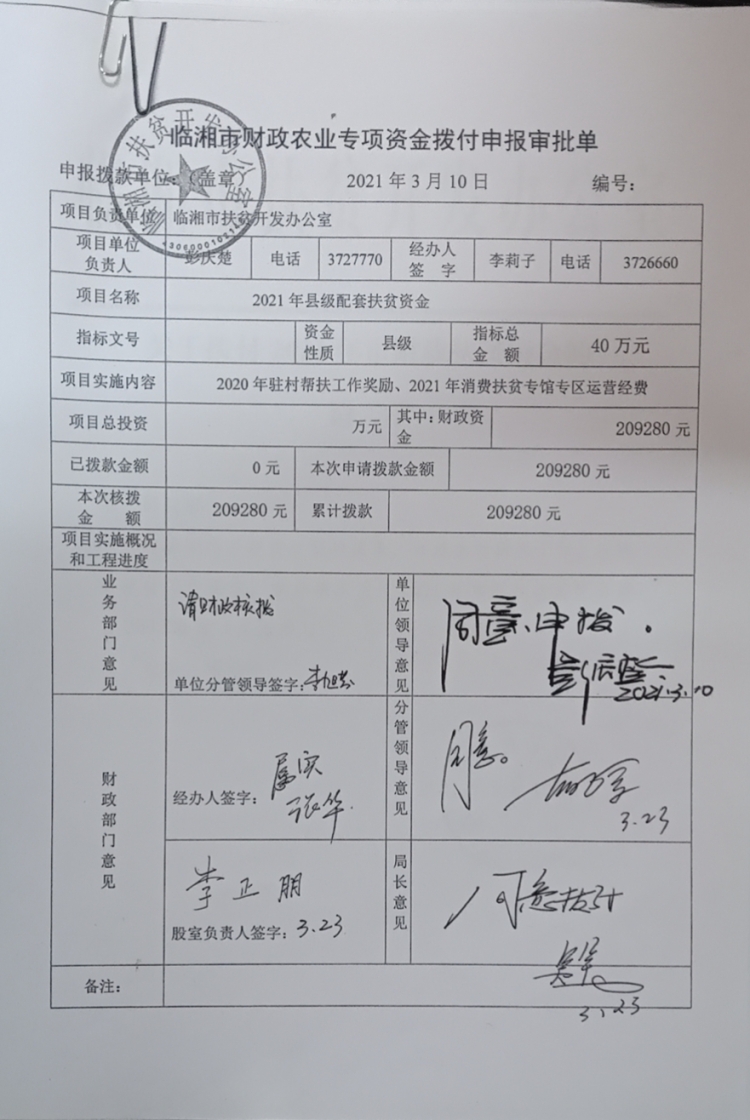 临湘市财政农业专项资金拨付申报审批单
申报拨款单位：盖章
2021年3月10日
编号：
项目负责单位 临湘市扶贫开发办公室
项目单位负责人 彭庆楚 电话 3727770 经办人签字 李莉子 电话 3726660
项目名称 2021年县级配套扶贫资金
指标文号 资金性质 县级 指标总金额 40万元
项目实施内容 2020年驻村帮扶工作奖励、2021年消费扶贫专馆专区运营经费
项目总投资 万元 其中：财政资金 209280元
已拨款金额 0元 本次申请拨款金额 209280元
本次核拨金额 209280元 累计拨款 209280元
项目实施概况和工程进度
业务部门意见 请财政核拨
单位分管领导签字：
单位领导意见 同意申拨。
2021.3.10
财政部门意见
经办人签字：属实 张华
分管领导意见 同意。
3.23
李正朋
股室负责人签字：3.23
局长意见 同意拨付
3.23
备注：